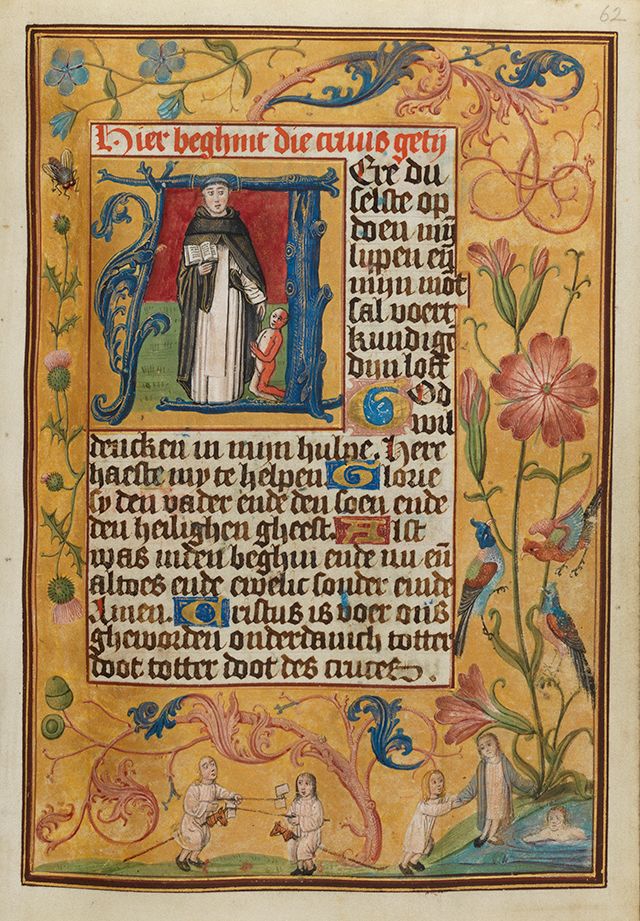 62
Hier beghint die cruus getij
HEre du
selste op
doen mijn
lypen eñ
mijn mot
sal voert
kundigē
dijn loff
God
wil
dencken in mijn hulpe. Herr
haeste my te helpen Glorie
sy den vader ende den soen ende
den heilighen gheest. Alst
was inden beghin ende nu eñ
altoes ende ewelic sonder einde
Amen. Cristus is voer ons
gheworden onderdanich totter
doot totter doot des cruces